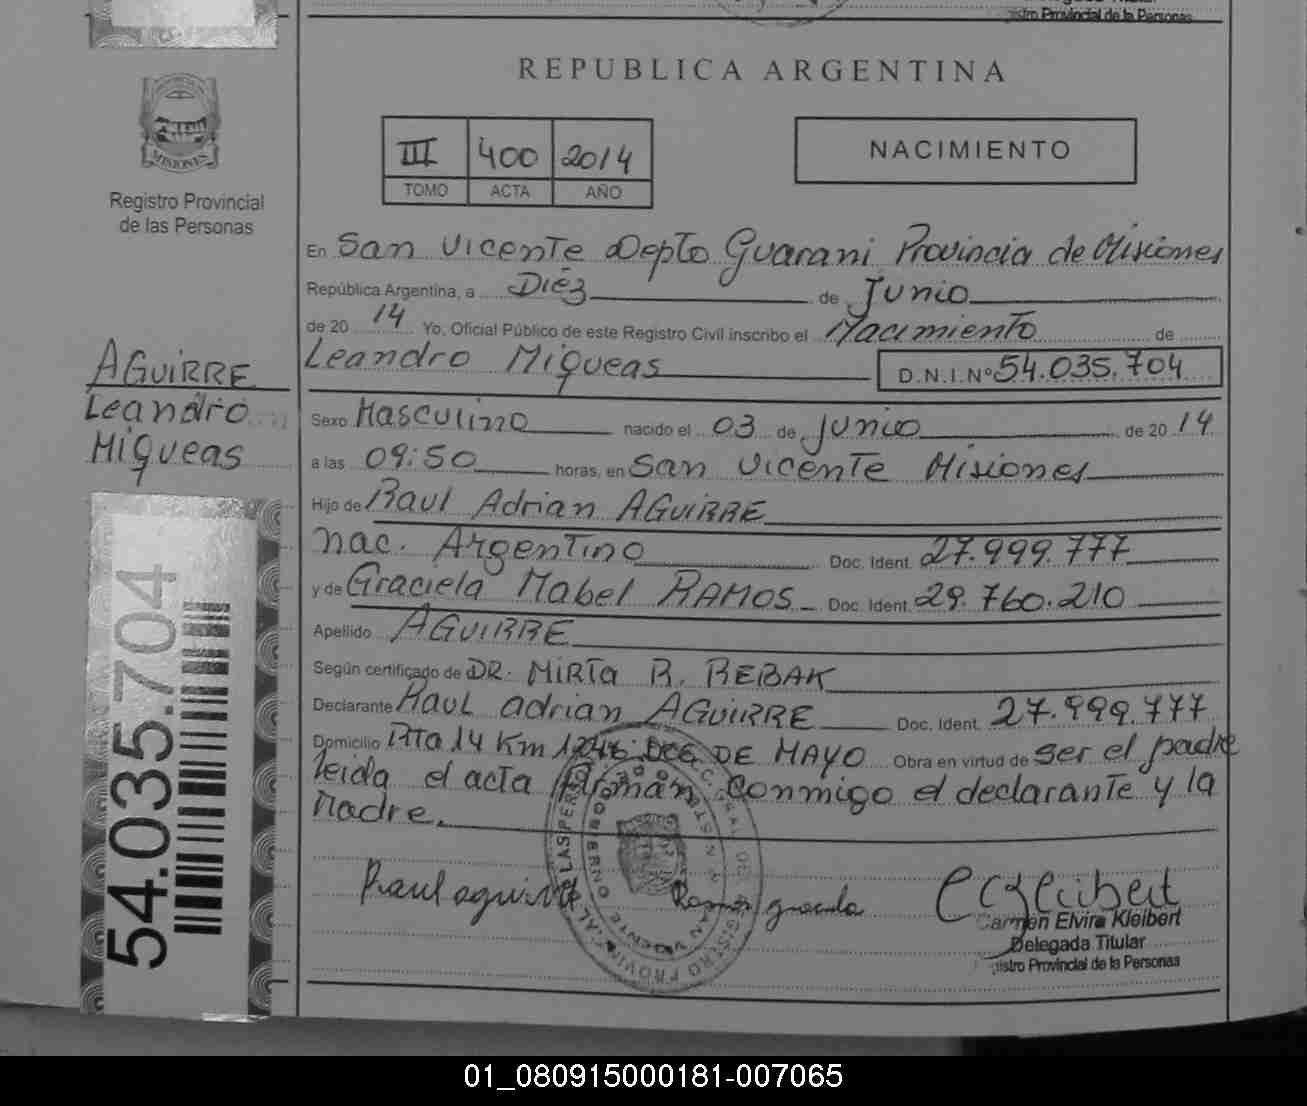 istro Provincial de la Personas
REPUBLICA ARGENTINA
MISIONES
Registro Provincial
de las Personas
III 400 2014
TOMO ACTA AÑO
NACIMIENTO
En San Vicente Depto Guarani Provincia de Misiones
República Argentina, a Diéz de Junio
de 20 14 Yo, Oficial Público de este Registro Civil inscribo el Nacimiento de
Leandro Miqueas D.N.I.Nº 54.035.704
AGUIRRE
Leandro
Miqueas
Sexo Masculino nacido el 03 de Junio de 20 14
a las 09:50 horas, en San Vicente Misiones
Hijo de Raul Adrian AGUIRRE
nac. Argentino Doc. Ident. 27.999.777
y de Graciela Mabel RAMOS Doc. Ident. 29.760.210
Apellido AGUIRRE
Según certificado de DR. MIRTA R. REBAK
Declarante Raul adrian AGUIRRE Doc. Ident. 27.999.777
Domicilio Rta 14 Km DE MAYO Obra en virtud de ser el padre
leida el acta firman conmigo el declarante y la
Madre.
54.035.704
Raul aguirre
Ramos graciela
Carmen Elvira Kleibert
Delegada Titular
istro Provincial de la Personas
01_080915000181-007065